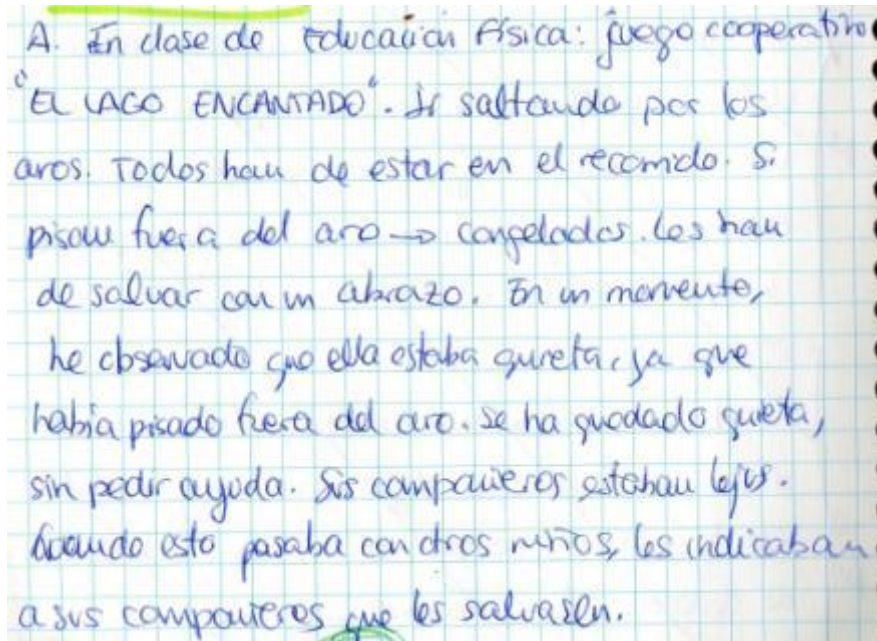 A. En clase de Educación Física: juego cooperativo
"EL LAGO ENCANTADO". Ir saltando por los
aros. Todos han de estar en el recorrido. Si
pisan fuera del aro → congelados. Les han
de salvar con un abrazo. En un momento,
he observado que ella estaba quieta, ya que
había pisado fuera del aro. Se ha quedado quieta,
sin pedir ayuda. Sus compañeros estaban lejos.
Cuando esto pasaba con otros niños, les indicaban
a sus compañeros que les salvasen.